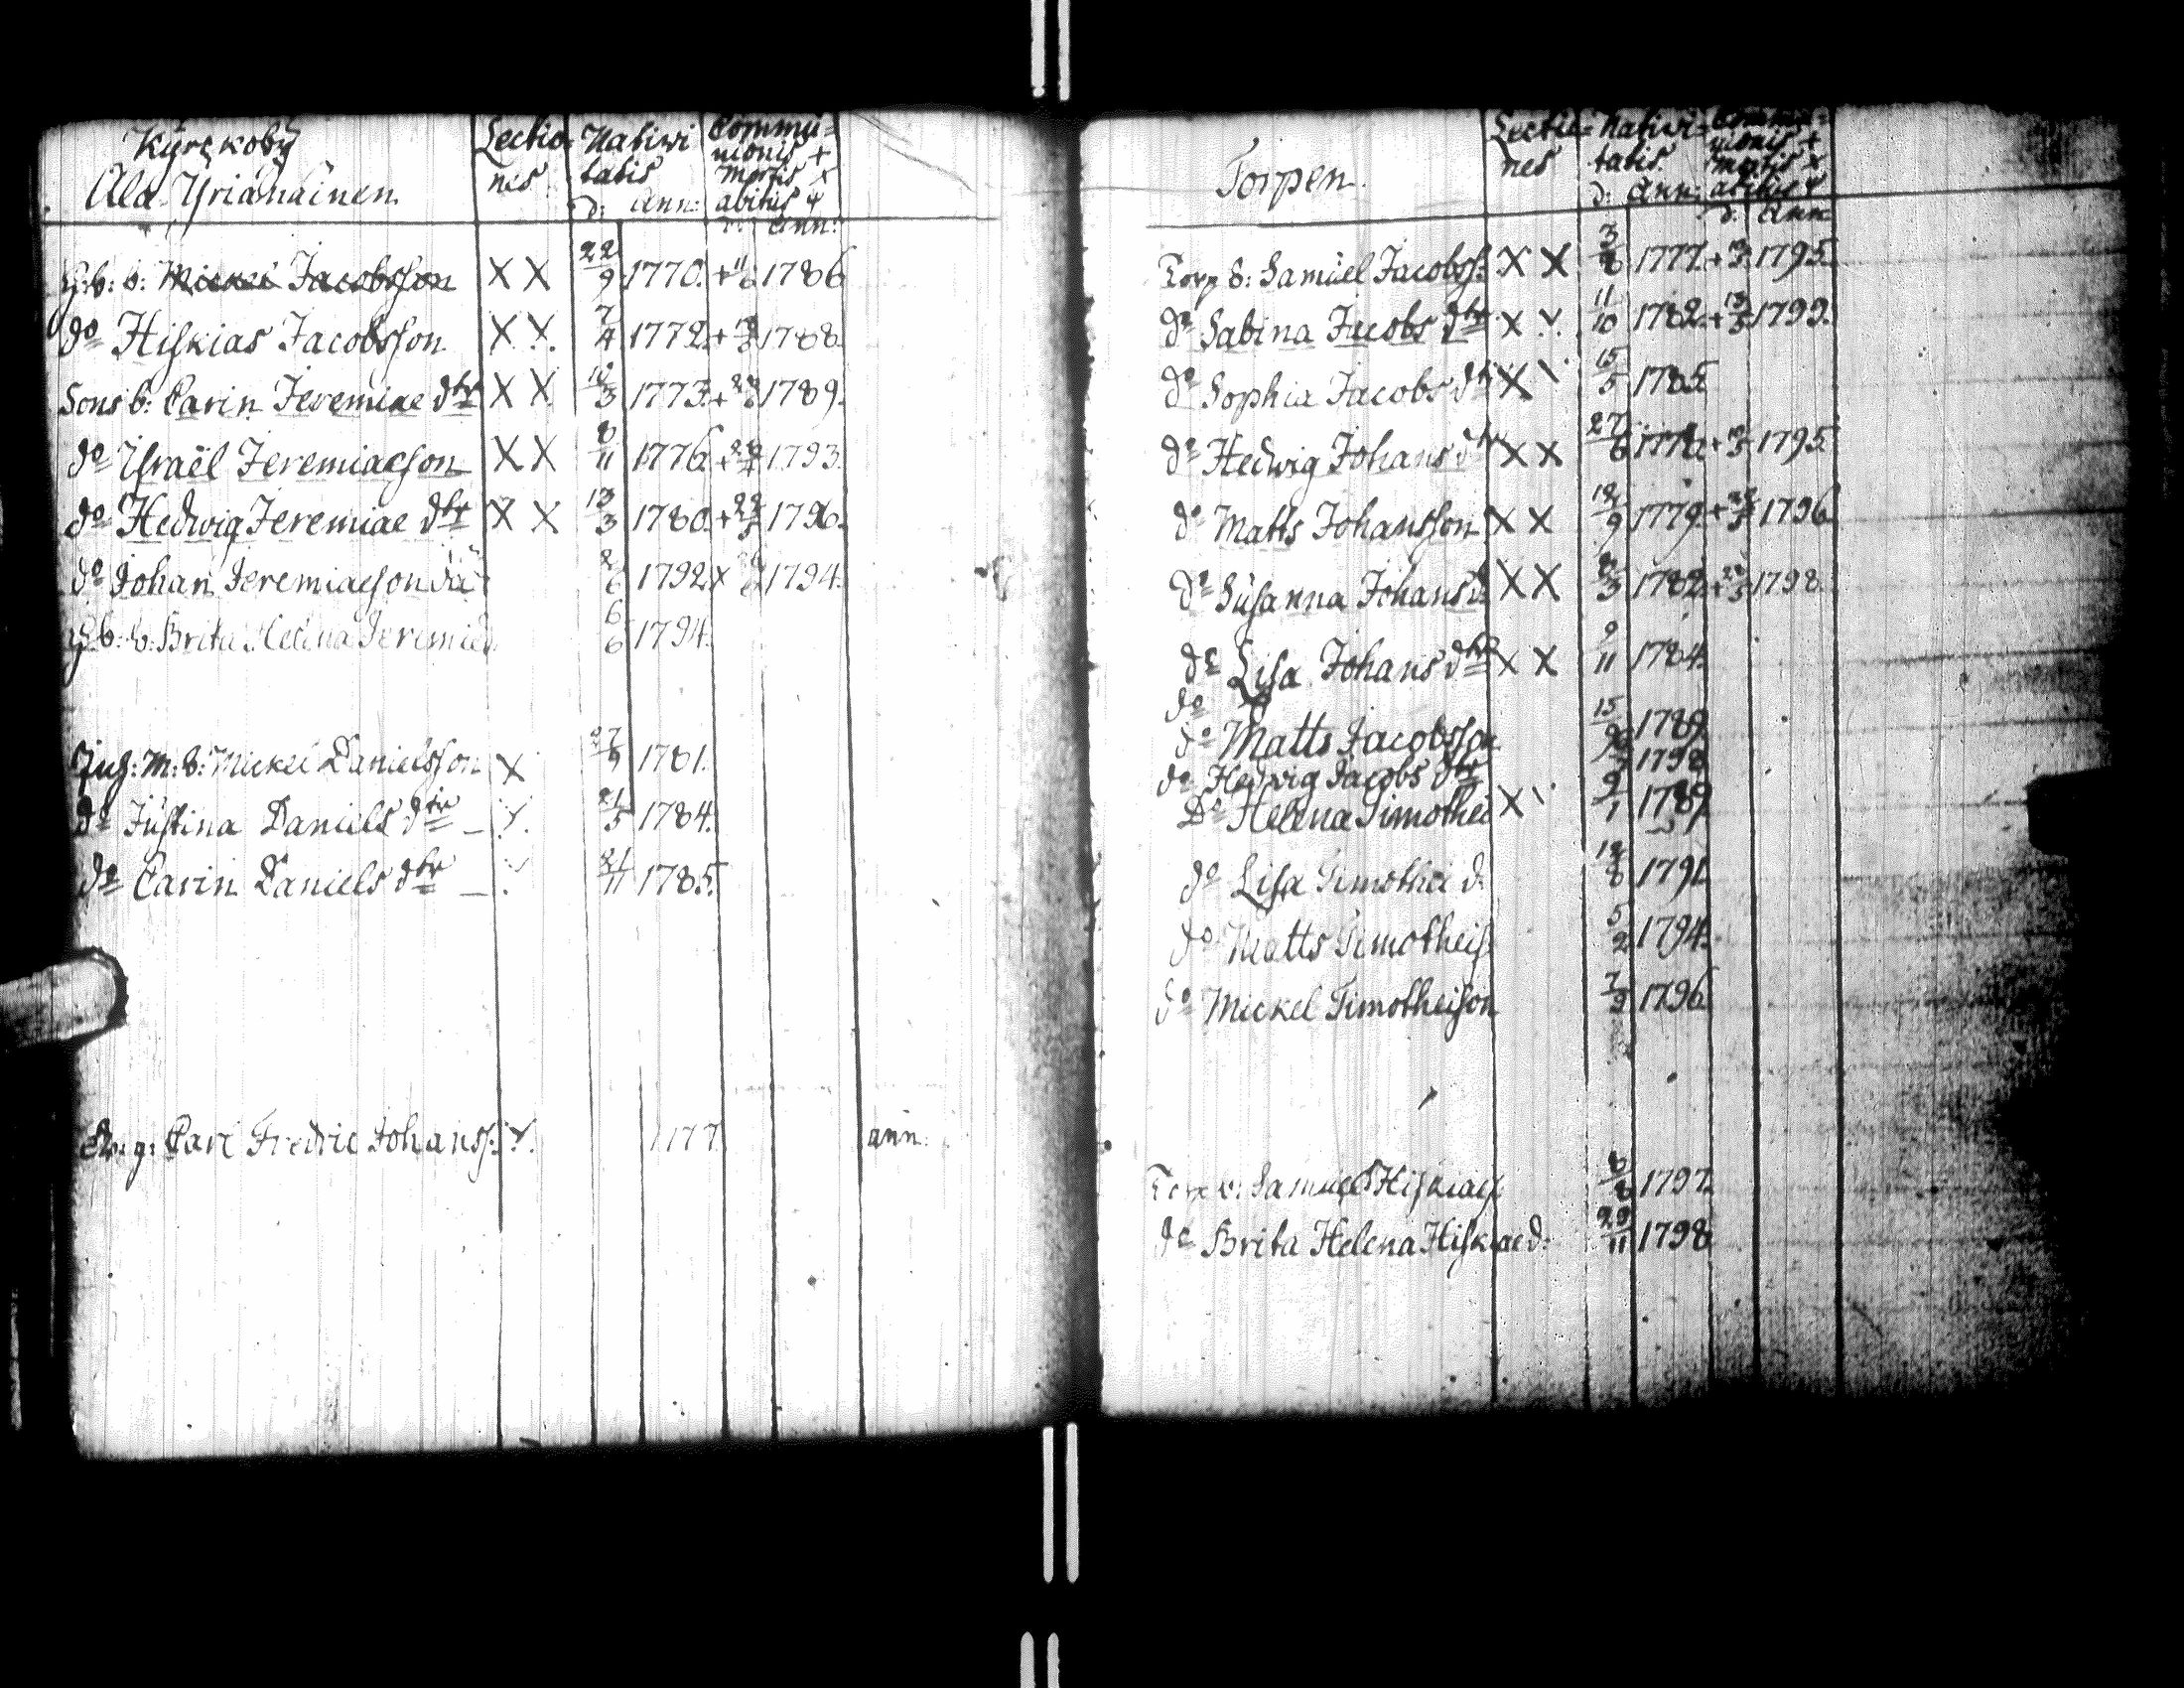 Kyrckoby
Ala Yriänäinen
Lectio-
nes
Nativi
tatis
d: ann:
Commu-
nionis +
mortis x
abitus ψ
d: ann:
G: b: b: Mickel Jacobsson X X 22/9 1770 + 11/6 1786
do Hiskias Jacobsson X X 7/4 1772 + 1788
Sons b: Carin Jeremiae dtr X X 3 1773 + 1789
do Israël Jeremiaesson X X 8/11 1776 + 1793
do Hedwig Jeremiae dtr X X 13/3 1780 + 22/5 1796
do Johan Jeremiaesson 2/6 1792 x 1794
G: b: b: Brita Helena Jeremiæ 6/6 1794
Inh: m: b: Mickel Danielsson X 27/9 1781
do Justina Daniels dtr 21/5 1784
do Carin Daniels dtr 21/11 1785
Carl Fredric Johanss: 177 ann:
Torpen
Lectio-
nes
Nativi-
tatis
d: Ann:
Commu-
nionis +
mortis x
abitus ψ
d: Ann
Torp b: Samuel Jacobss: X X 3/8 1777 + 13/3 1795
do Sabina Jacobs dtr X 11/10 1782 + 13/5 1799
do Sophia Jacobs dtr X 15/5 1785
do Hedwig Johans dtr X X 27/6 + 1795
do Matts Johansson X X 18/9 1779 + 1796
do Susanna Johans d: X X 8/3 1782 + 28/5 1798
do Lisa Johans dtr X X 9/11 1784
do
do Matts Jacobsson 15 1789
do Hedwig Jacobs dtr 1798
Do Helena Timothei X 9/1 1789
do Lisa Timothei d: 18/8 1791
do Matts Timotheis 5/2 1794
do Mickel Timotheison 7/9 1796
Torp b: Samuel Hiskiaes 8/8 1797
do Brita Helena Hiskiae d: 29/11 1798